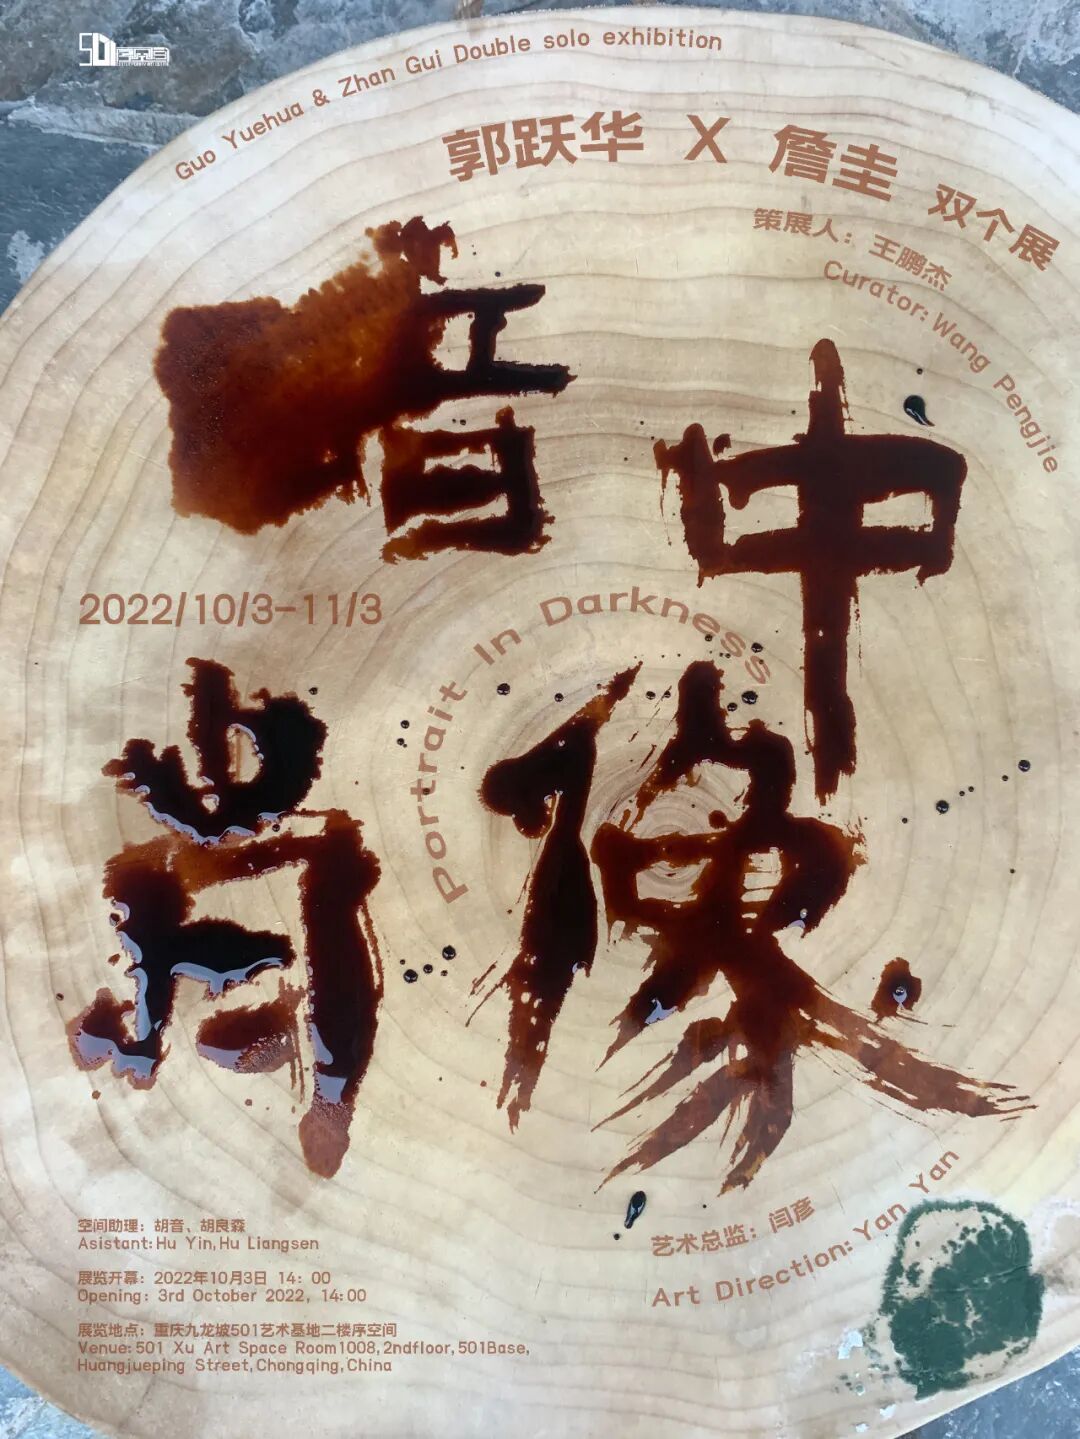 Guo Yuehua & Zhan Gui Double solo exhibition
郭跃华 X 詹圭 双个展
策展人：王鹏杰
Curator:Wang Pengjie
暗中
2022/10/3-11/3
Portrait In Darkness
肖像
空间助理：胡音、胡良森
Asistant:Hu Yin,Hu Liangsen
展览开幕：2022年10月3日 14：00
Opening: 3rd October 2022, 14:00
展览地点：重庆九龙坡501艺术基地二楼序空间
Venue:501 Xu Art Space Room1008,2ndfloor,501Base,
Huangjueping Street,Chongqing,China
艺术总监：闫彦
Art Direction:Yan Yan